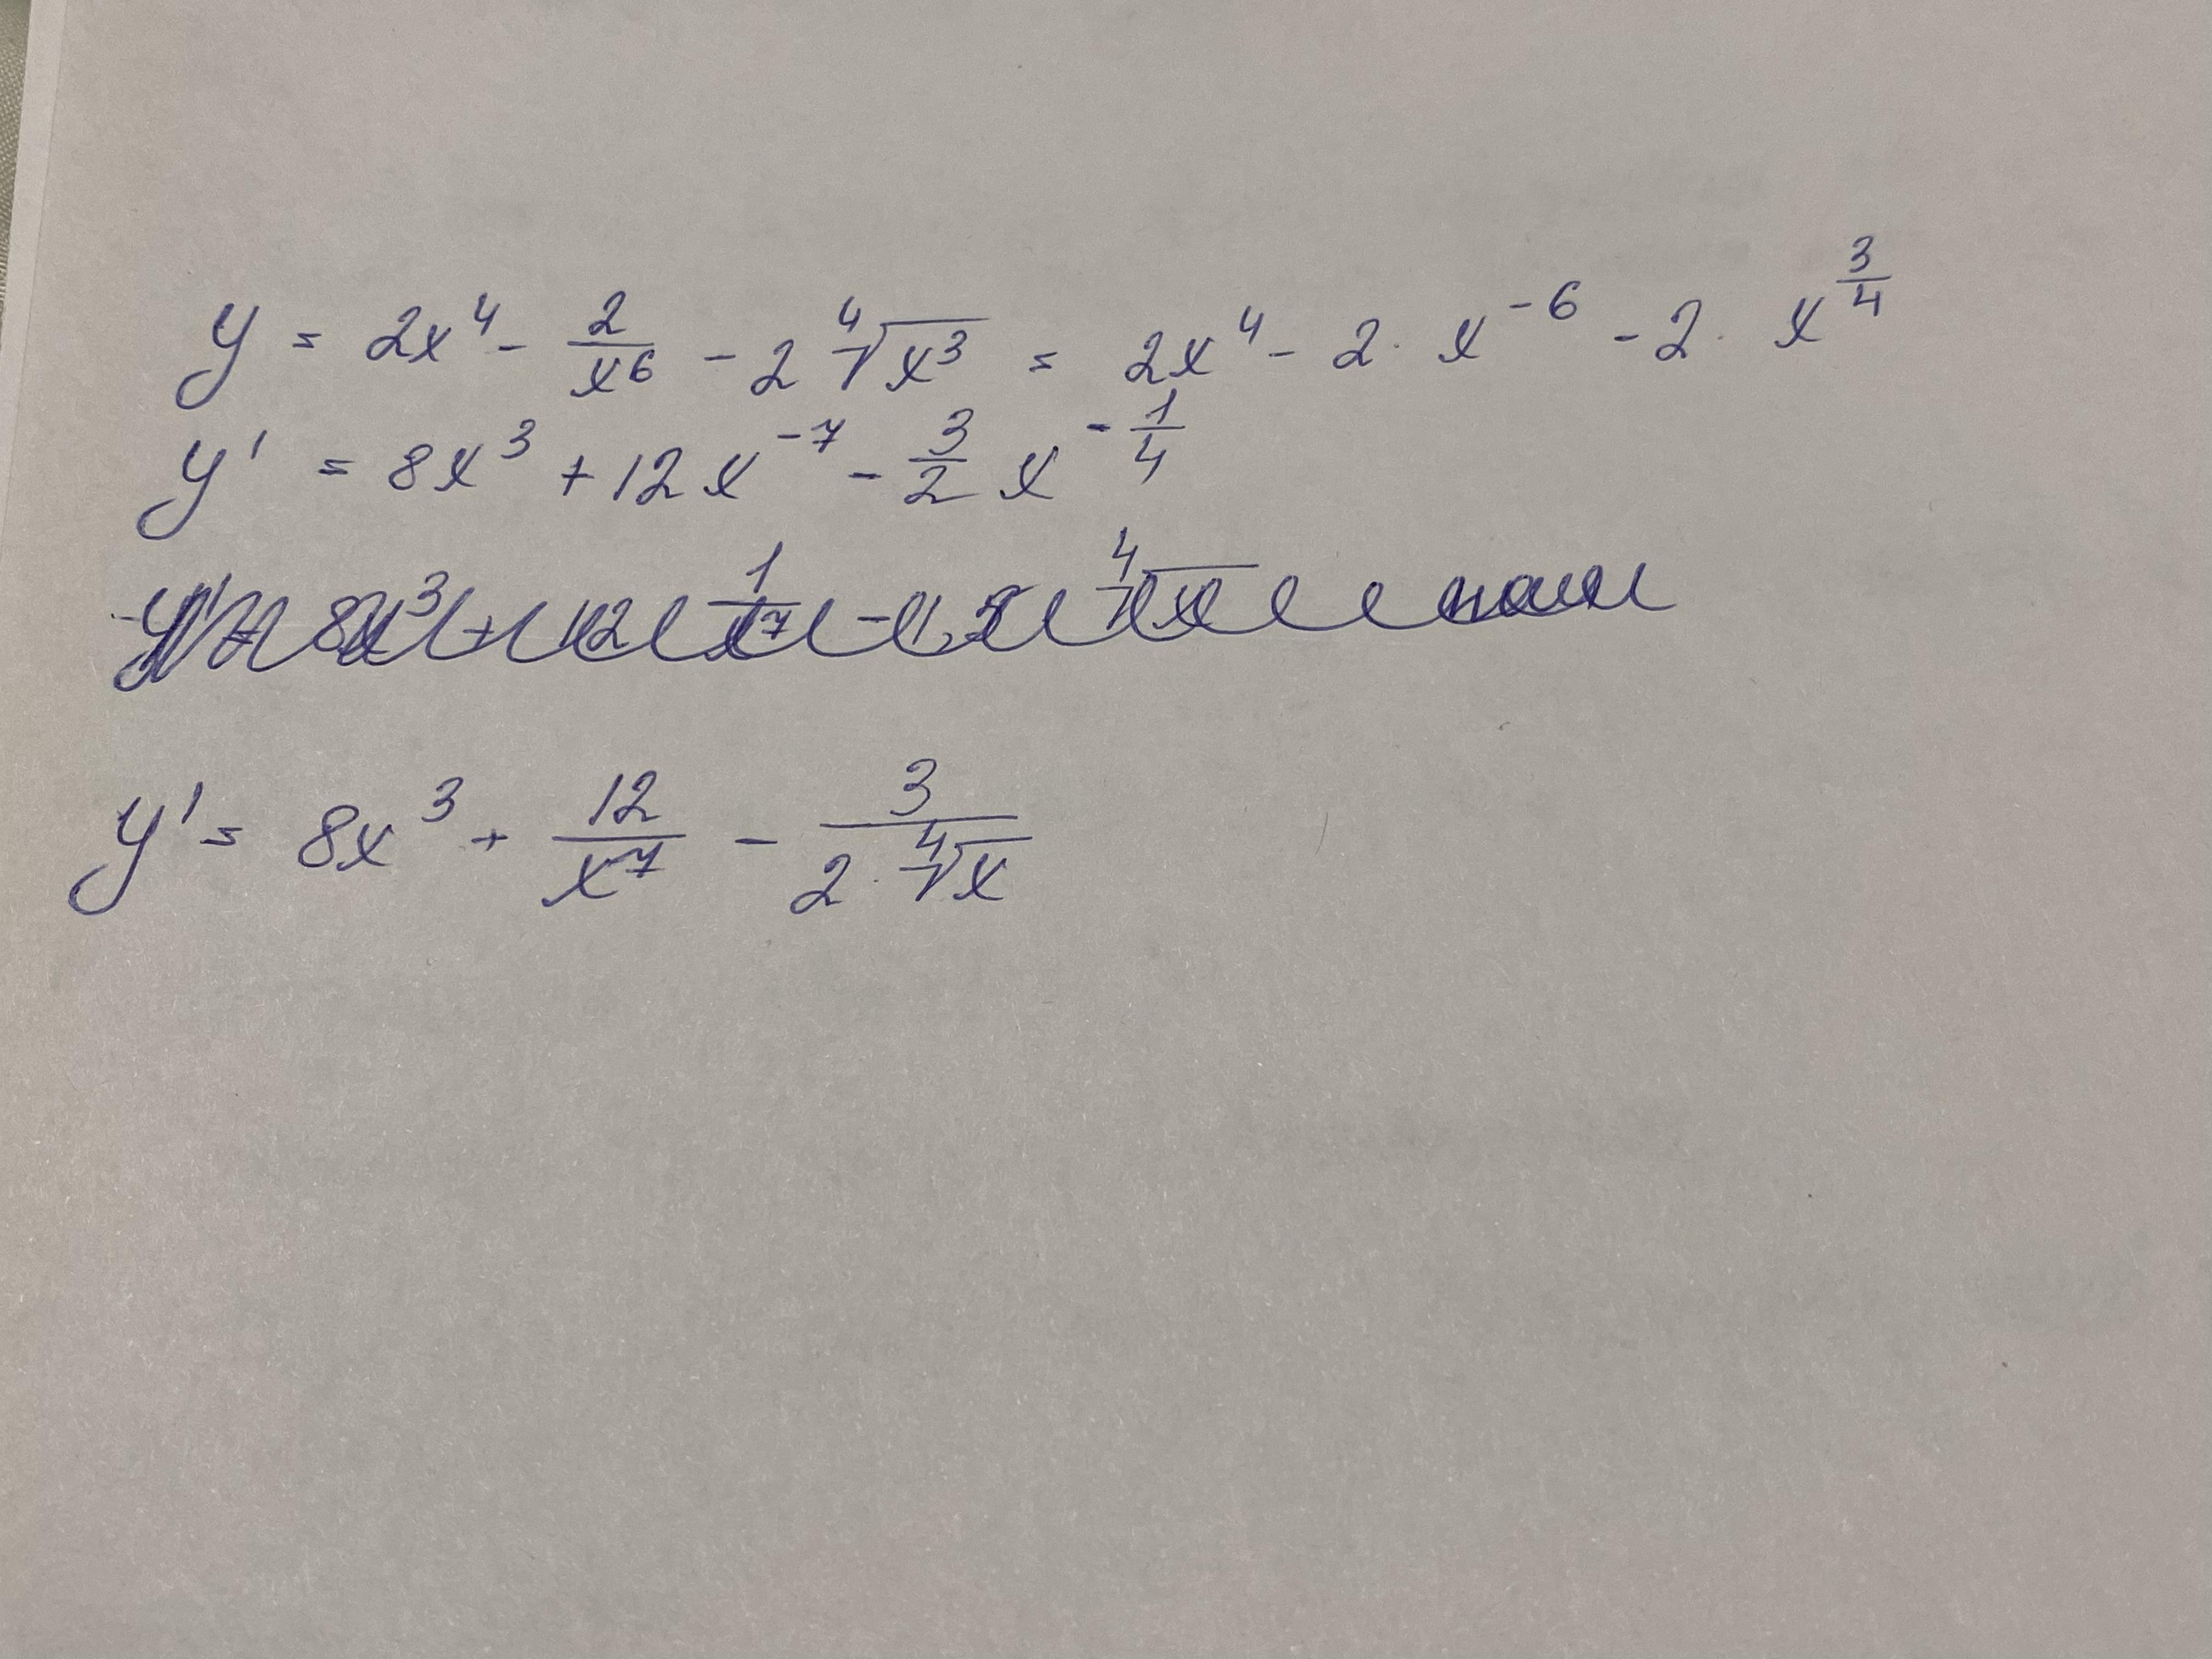 y = 2x⁴ - 2/x⁶ - 2 ⁴√x³ = 2x⁴ - 2 · x⁻⁶ - 2 · x^(3/4)
y' = 8x³ + 12x⁻⁷ - 3/2 x^(-1/4)
y' = 8x³ + 12/x⁷ - 3/(2 · ⁴√x)